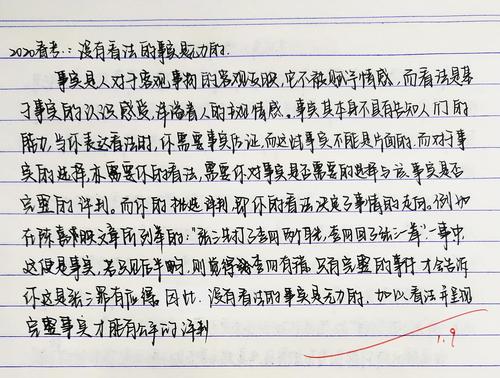 2020春考：没有看法的事实是无力的.
事实是人对于客观事物的客观反映,它不能赋予情感,而看法是基
于事实的认识感觉,洋溢着人的主观情感。事实其本身不具有告知人们的
能力,当你表达看法时,你需要事实佐证,而这些事实不能是片面的.而对于事
实的选择,亦需要你的看法,需要你对事实是否需要的选择与该事实是否
完整的评判。而你的挑选评判,即你的看法决定了事情的走向。例如
在陈 文章所列举的:"张三先打了李四两耳光,李四回了张三一拳"一事中,
这便是事实,若只见后半 ,则觉得 李四有错,只有完整的事件才会告诉
你这是张三罪有应得.因此,没有看法的事实是无力的,加以看法并呈现
完整事实才能有公平的评判
1.9